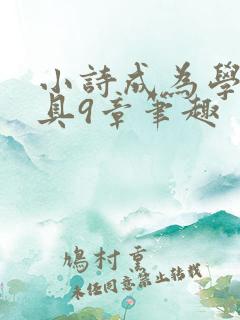 小詩成為學
具9章筆趣
鳩村熏
未任同意禁止轉載